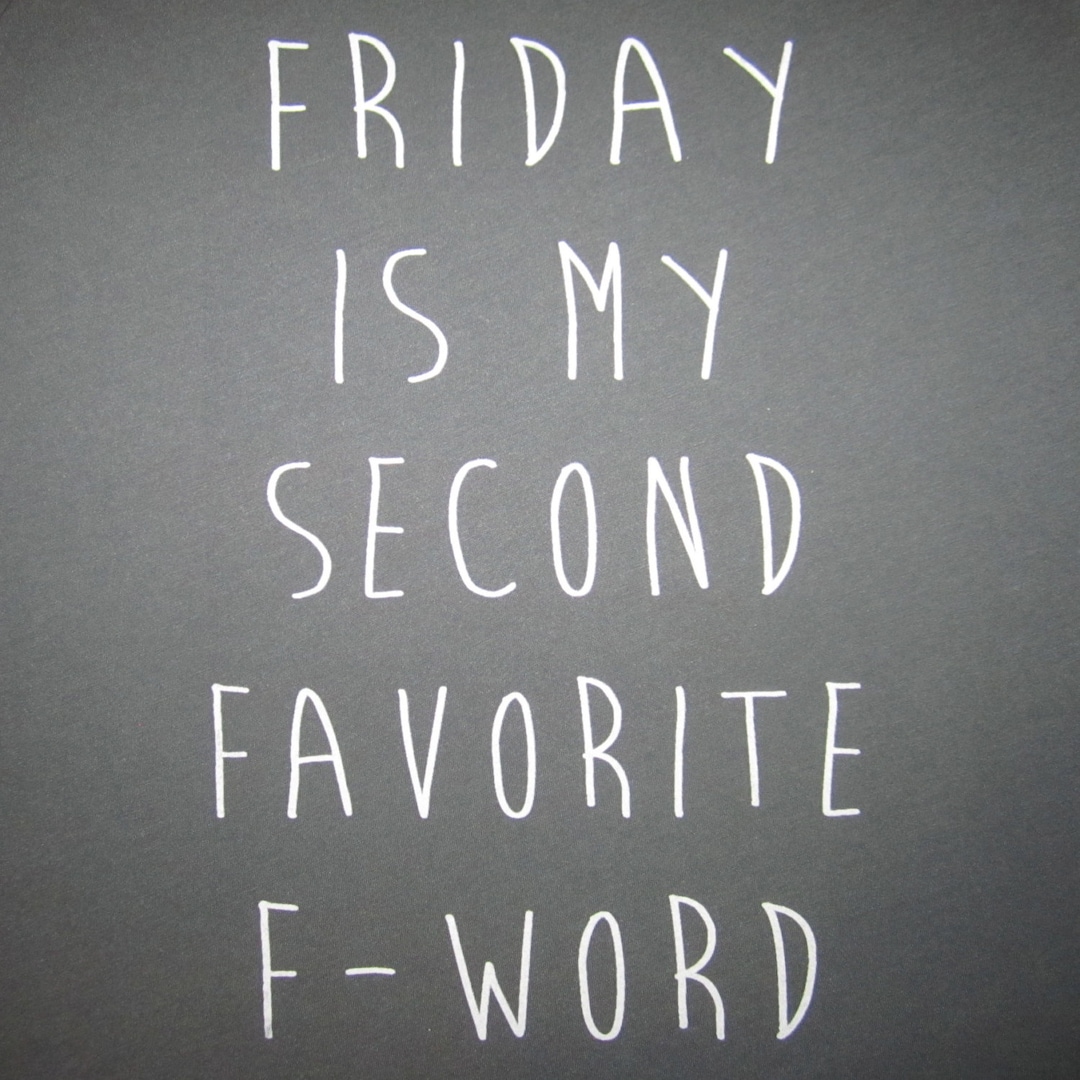 FRIDAY
IS MY
SECOND
FAVORITE
F-WORD